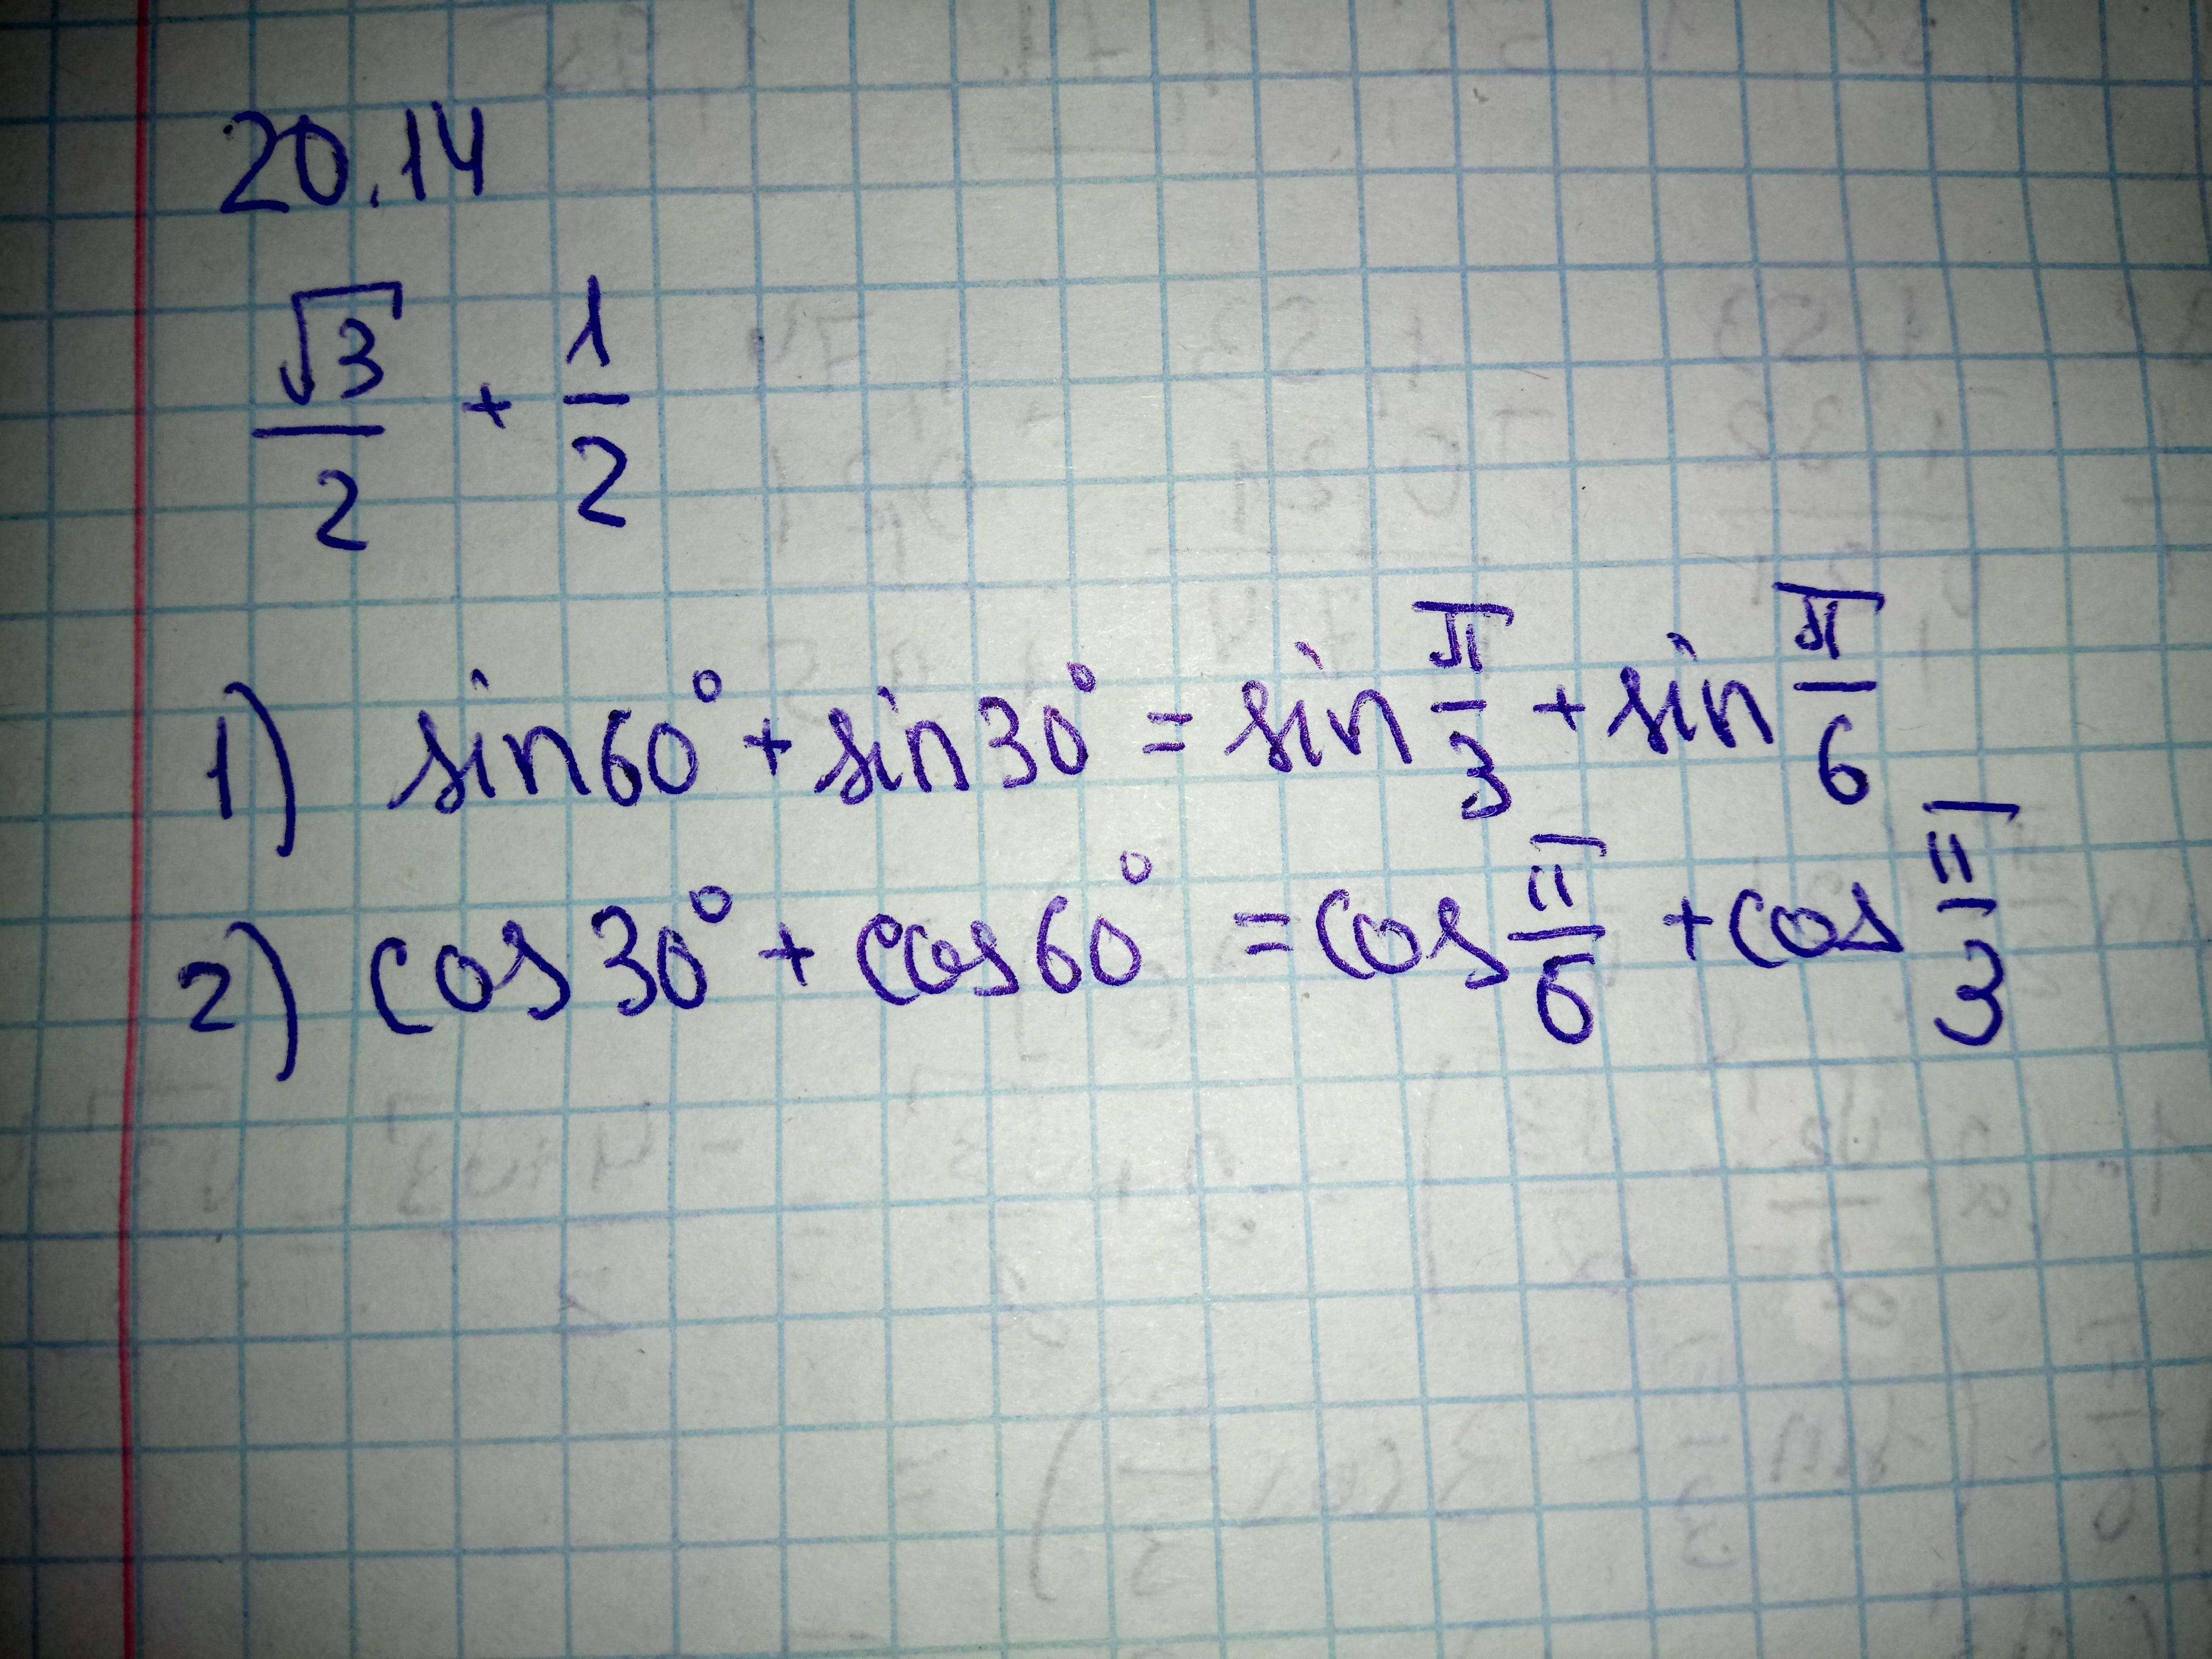 20.14
√3/2 + 1/2
1) sin60° + sin30° = sin π/3 + sin π/6
2) cos30° + cos60° = cos π/6 + cos π/3